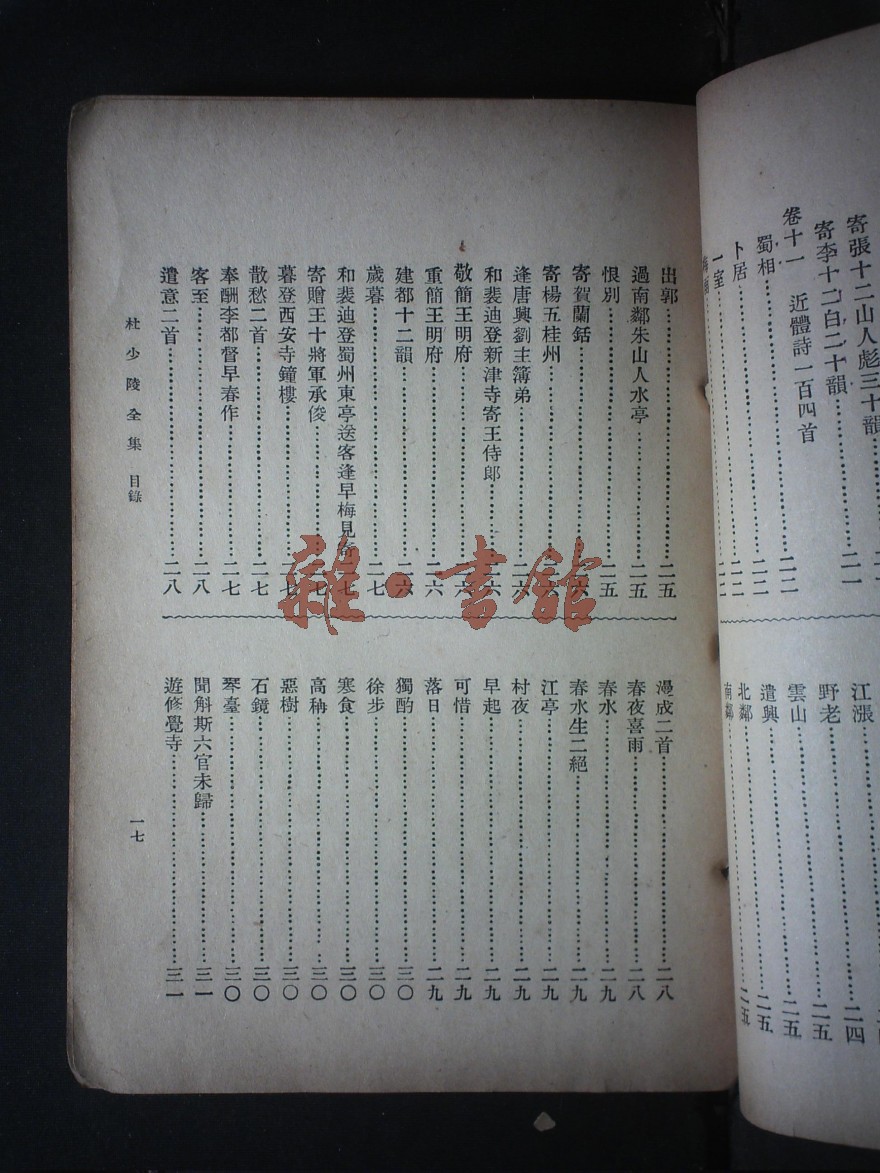 寄張十二山人彪三十韻
寄李十二白二十韻……二一
卷十一 近體詩一百四首
……二二
蜀相……二二
卜居……二二
一室……二二
江漲……二四
野老……二五
雲山……二五
遣興……二五
北鄰……二五
南鄰
出郭……二五
過南鄰朱山人水亭……二五
恨別……二五
寄賀蘭銛……二六
寄楊五桂州……二六
逢唐興劉主簿弟……二六
和裴迪登新津寺寄王侍郎……二六
敬簡王明府……二六
重簡王明府……二六
建都十二韻……二六
歲暮……二七
和裴迪登蜀州東亭送客逢早梅見寄……二七
寄贈王十將軍承俊……二七
暮登西安寺鐘樓……二七
散愁二首……二七
奉酬李都督早春作……二七
客至……二八
遣意二首……二八
漫成二首……二八
春夜喜雨……二八
春水……二九
春水生二絕……二九
江亭……二九
村夜……二九
早起……二九
可惜……二九
落日……二九
獨酌……三〇
徐步……三〇
寒食……三〇
高稱……三〇
惡樹……三〇
石鏡……三〇
琴臺……三〇
聞斛斯六官未歸……三一
遊修覺寺……三一
杜少陵全集 目錄
一七
雜·書館